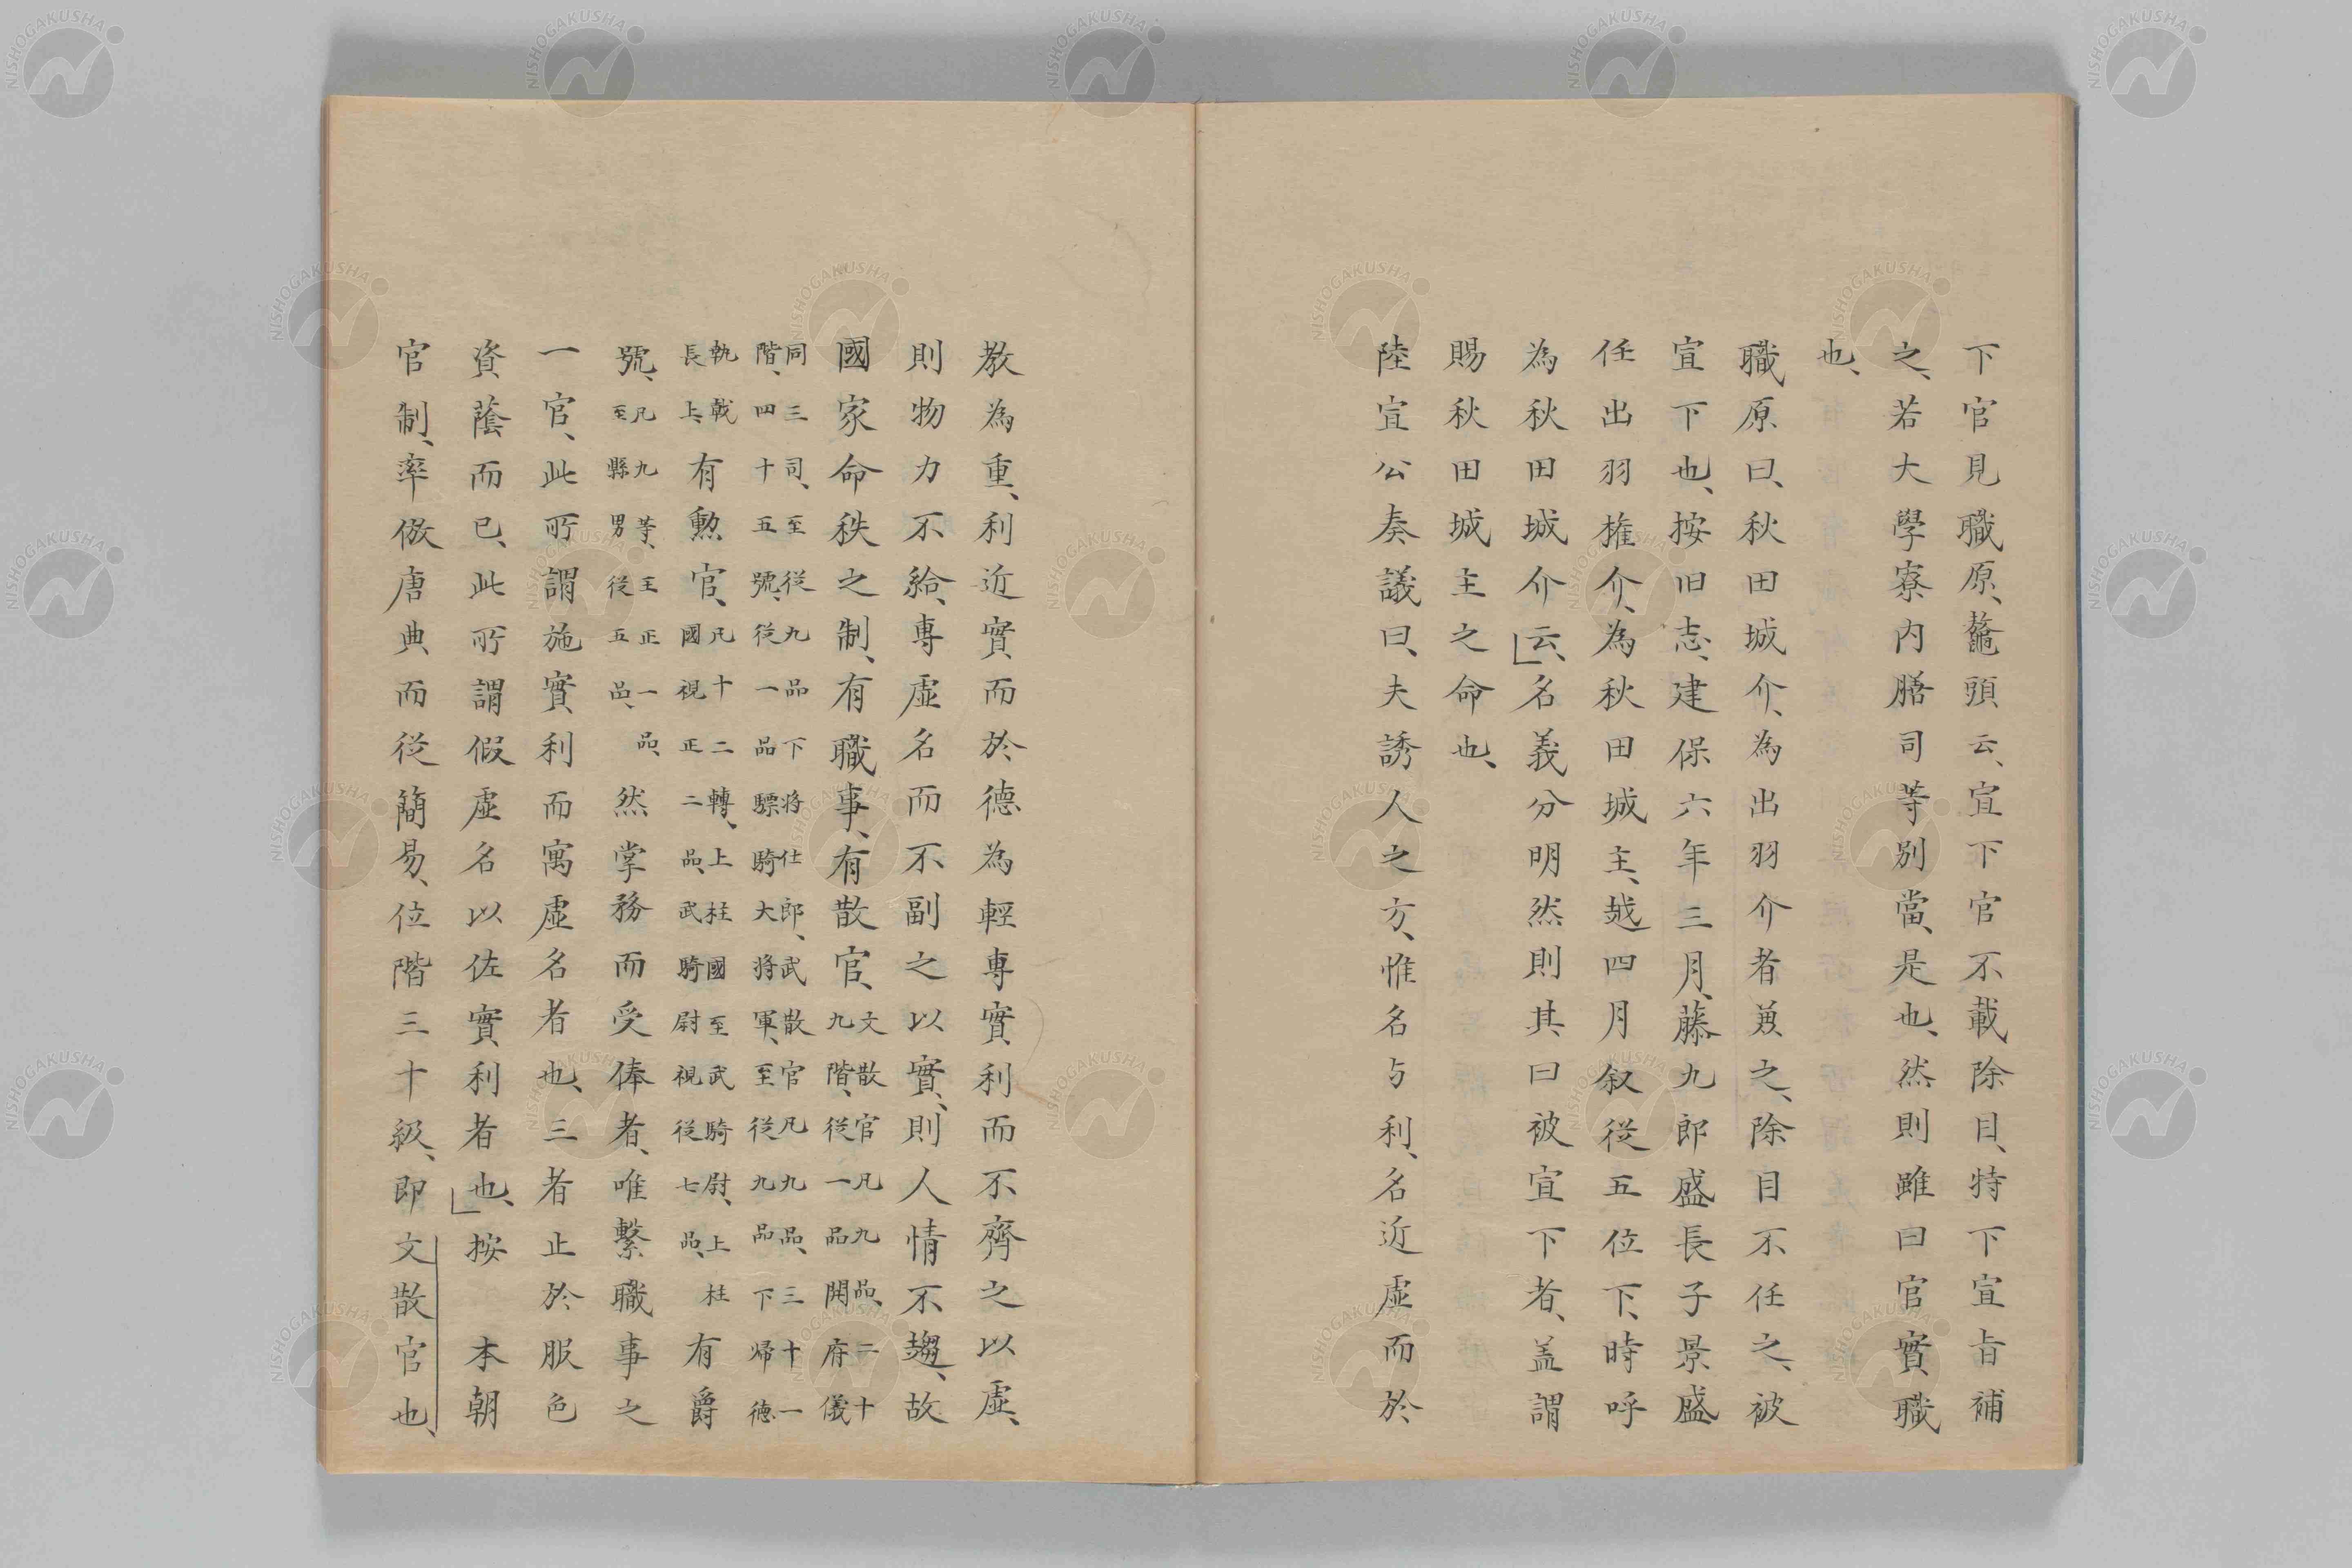 下官見職原、鼇頭云、宣下官不載除目、特下宣旨補
之、若大學寮内膳司等別當、是也、然則雖曰官實職
也、
職原曰、秋田城介、為出羽介者兼之、除目不任之、被
宣下也、按旧志、建保六年三月、藤九郎盛長子景盛
任出羽権介、為秋田城主、越四月叙從五位下、時呼
為秋田城介云、」名義分明然則其曰被宣下者、盖謂
賜秋田城主之命也、
陸宣公奏議曰、夫誘人之方、惟名与利、名近虚而於
教為重、利近實而於德為輕專實利而不齊之以虚、
則物力不給、專虚名而不副之以實、則人情不趨、故
國家命秩之制、有職事、有散官、文散官凡九品、二十九階、從一品開府儀
同三司、至從九品下将仕郎、武散官凡九品、三十一階、四十五號、從一品驃騎大将軍、至從九品下歸德
執戟長上、有勲官、凡十二轉、上柱國至武騎尉、上柱國視正二品、武騎尉視從七品、有爵
號、凡九等、王正一品、至縣男從五品、然掌務而受俸者、唯繫職事之
一官、此所謂施實利而寓虚名者也、三者止於服色
資蔭而已、此所謂假虚名以佐實利者也、」按　本朝
官制、率倣唐典而從簡易、位階三十級、即文散官也、
NISHOGAKUSHA